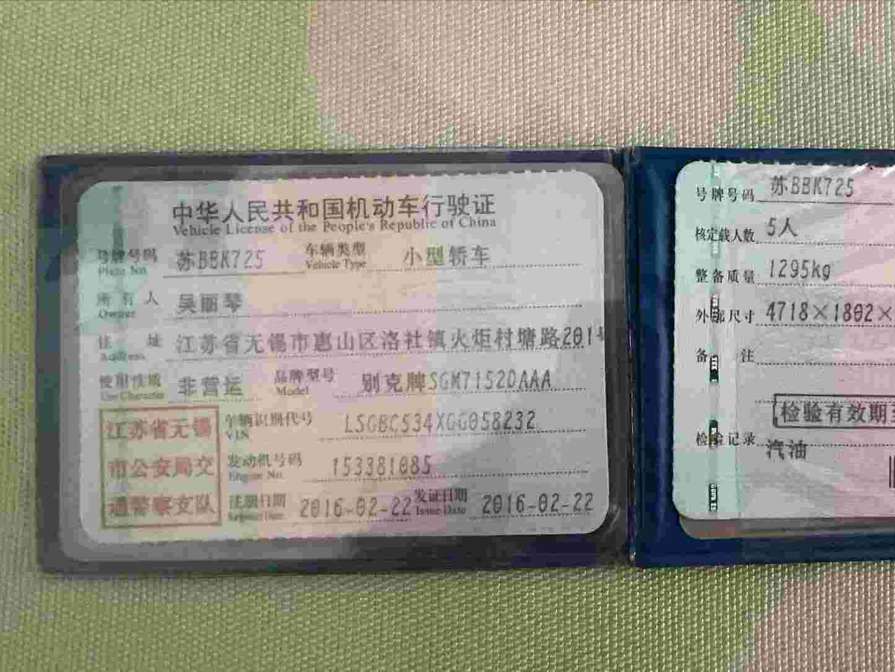 中华人民共和国机动车行驶证
Vehicle License of the People's Republic of China
号牌号码 苏BBK725 车辆类型 小型轿车
Plate No. Vehicle Type
所有人 吴丽琴
Owner
住址 江苏省无锡市惠山区洛社镇火炬村塘路201号
Address
使用性质 非营运 品牌型号 别克牌SGM7152DAAA
Use Character Model
江苏省无锡
市公安局交
通警察支队
车辆识别代号 LSGBC534XGG058232
VIN
发动机号码 153381085
Engine No.
注册日期 2016-02-22 发证日期 2016-02-22
Register Date Issue Date
号牌号码 苏BBK725
核定载人数 5人
整备质量 1295kg
外部尺寸 4718×1802×
备注
检验有效期
检验记录
汽油